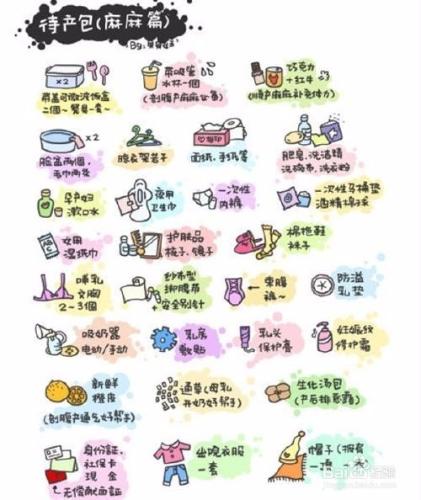 待产包(麻麻篇)
By:
×2
带盖可微波饭盒
二个~餐具一套~
带吸管
水杯一個
(剖腹产麻麻必备)
巧克力
+红牛
(顺产麻麻补充体力)
×2
脸盆两個,
毛巾两条
晾衣架若干
面纸,手纸等
肥皂,洗洁精
洗碗布,洗衣粉
孕产妇
漱口水
夜用
卫生巾
一次性
内裤
一次性马桶垫
酒精棉球
女用
湿纸巾
护肤品
梳子、镜子
棉拖鞋
袜子
哺乳
文胸
2~3個
纱布型
绑腹带
+安全别针
束腹
裤~
防溢
乳垫
吸奶器
电动/手动
乳房
敷贴
乳头
保护膏
妊娠纹
修护霜
新鲜
橙皮
(剖腹产通气好帮手)
通草(母乳
开奶好帮手)
生化汤包
(产后排恶露)
身份证,
社保卡
现金
无偿献血证
坐晚衣服
一套
帽子(擁有
一顶
Baidu